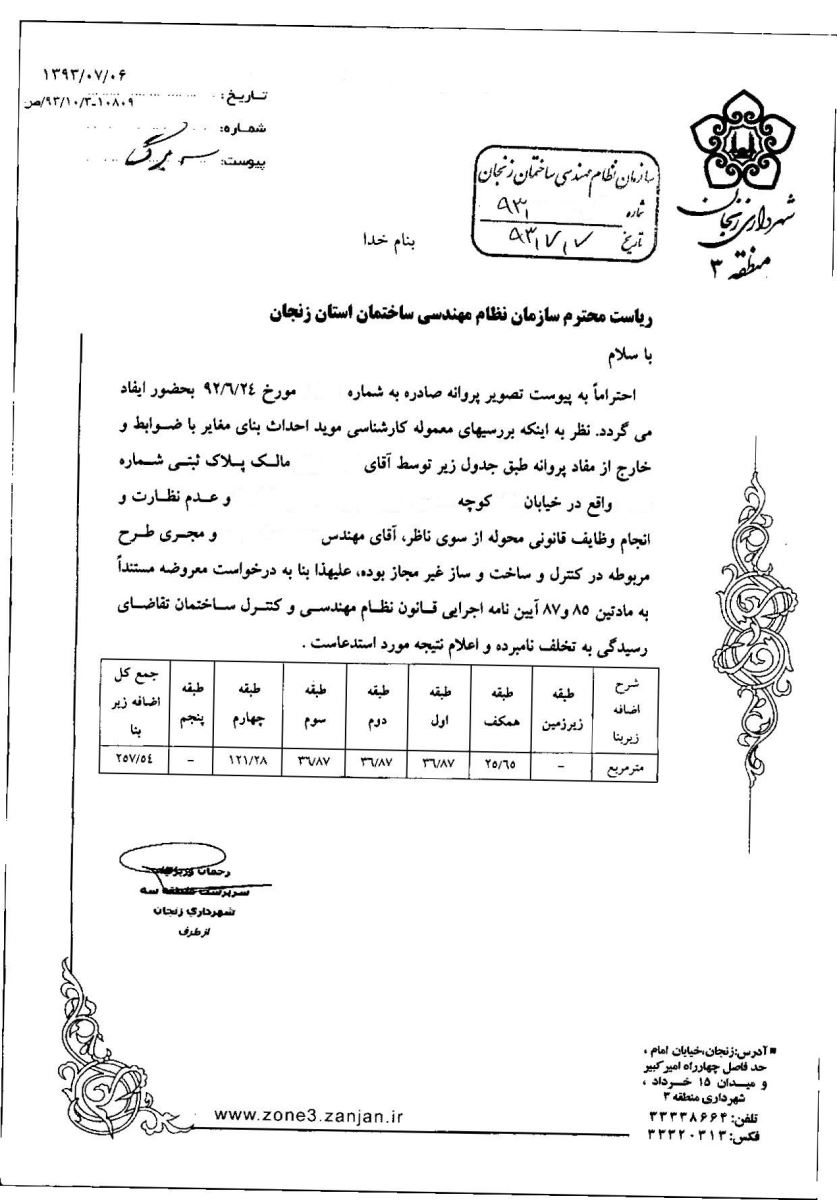 ۱۳۹۳/۰۷/۰۶
تاریخ:
۹۳/۱۰/۳-۱۰۸۰۹/ص
شماره:
پیوست: ۳ برگ
شهرداری زنجان
منطقه ۳
سازمان نظام مهندسی ساختمان زنجان
شماره ۹۳۱
تاریخ ۹۳/۷/۷
بنام خدا
ریاست محترم سازمان نظام مهندسی ساختمان استان زنجان
با سلام
احتراماً به پیوست تصویر پروانه صادره به شماره مورخ ۹۲/٦/۲٤ بحضور ایفاد
می گردد. نظر به اینکه بررسیهای معموله کارشناسی موید احداث بنای مغایر با ضوابط و
خارج از مفاد پروانه طبق جدول زیر توسط آقای مالک پلاک ثبتی شماره
واقع در خیابان کوچه و عدم نظارت و
انجام وظایف قانونی محوله از سوی ناظر، آقای مهندس و مجری طرح
مربوطه در کنترل و ساخت و ساز غیر مجاز بوده، علیهذا بنا به درخواست معروضه مستنداً
به مادتین ۸۵ و۸۷ آیین نامه اجرایی قانون نظام مهندسی و کنترل ساختمان تقاضای
رسیدگی به تخلف نامبرده و اعلام نتیجه مورد استدعاست .
شرح اضافه زیربنا | طبقه زیرزمین | طبقه همکف | طبقه اول | طبقه دوم | طبقه سوم | طبقه چهارم | طبقه پنجم | جمع کل اضافه زیر بنا
مترمربع | – | ۲۵/٦۵ | ۳٦/۸۷ | ۳٦/۸۷ | ۳٦/۸۷ | ۱۲۱/۲۸ | – | ۲۵۷/۵٤
رحمان
سرپرست منطقه سه
شهرداری زنجان
ازطرف
آدرس:زنجان،خیابان امام ،
حد فاصل چهارراه امیرکبیر
و میدان ۱۵ خرداد ،
شهرداری منطقه ۳
تلفن: ۳۳۳۳۸۶۶۴
فکس: ۳۳۳۲۰۳۱۳
www.zone3.zanjan.ir